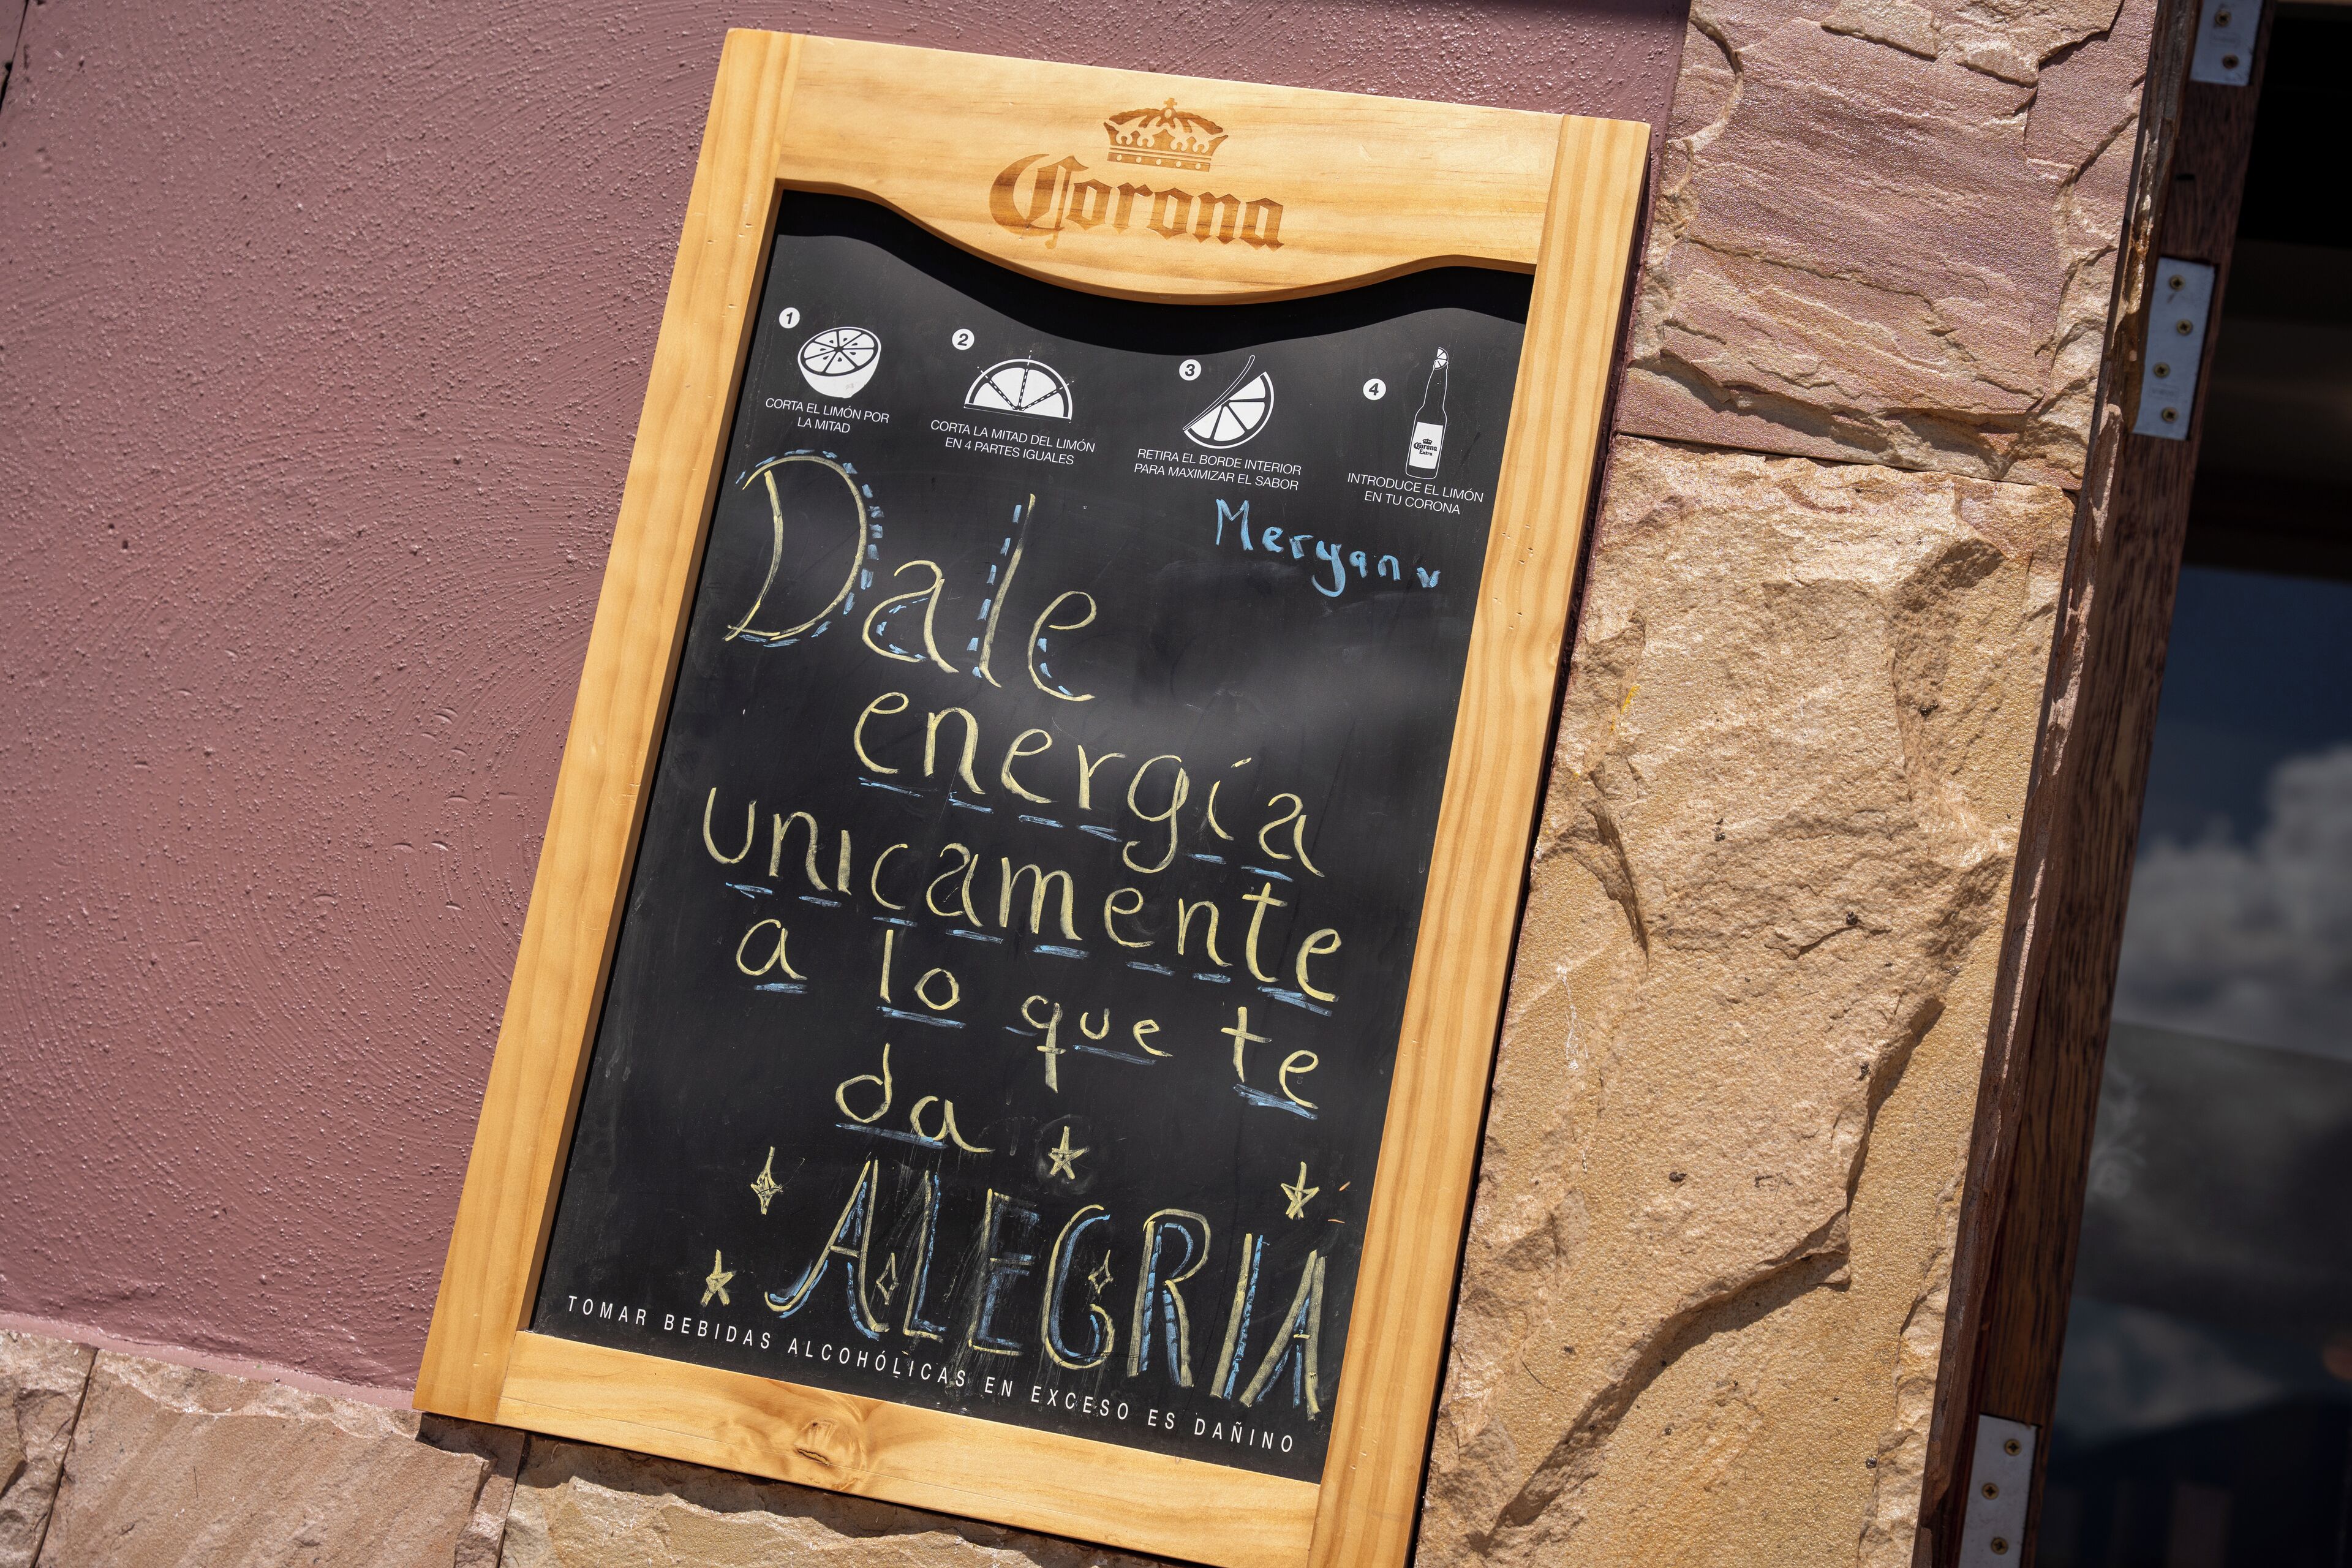 Corona
1
CORTA EL LIMÓN POR
LA MITAD
2
CORTA LA MITAD DEL LIMÓN
EN 4 PARTES IGUALES
3
RETIRA EL BORDE INTERIOR
PARA MAXIMIZAR EL SABOR
4
Corona
Extra
INTRODUCE EL LIMÓN
EN TU CORONA
Meryan
Dale
energía
unicamente
a lo que te
da
ALEGRIA
TOMAR BEBIDAS ALCOHÓLICAS EN EXCESO ES DAÑINO